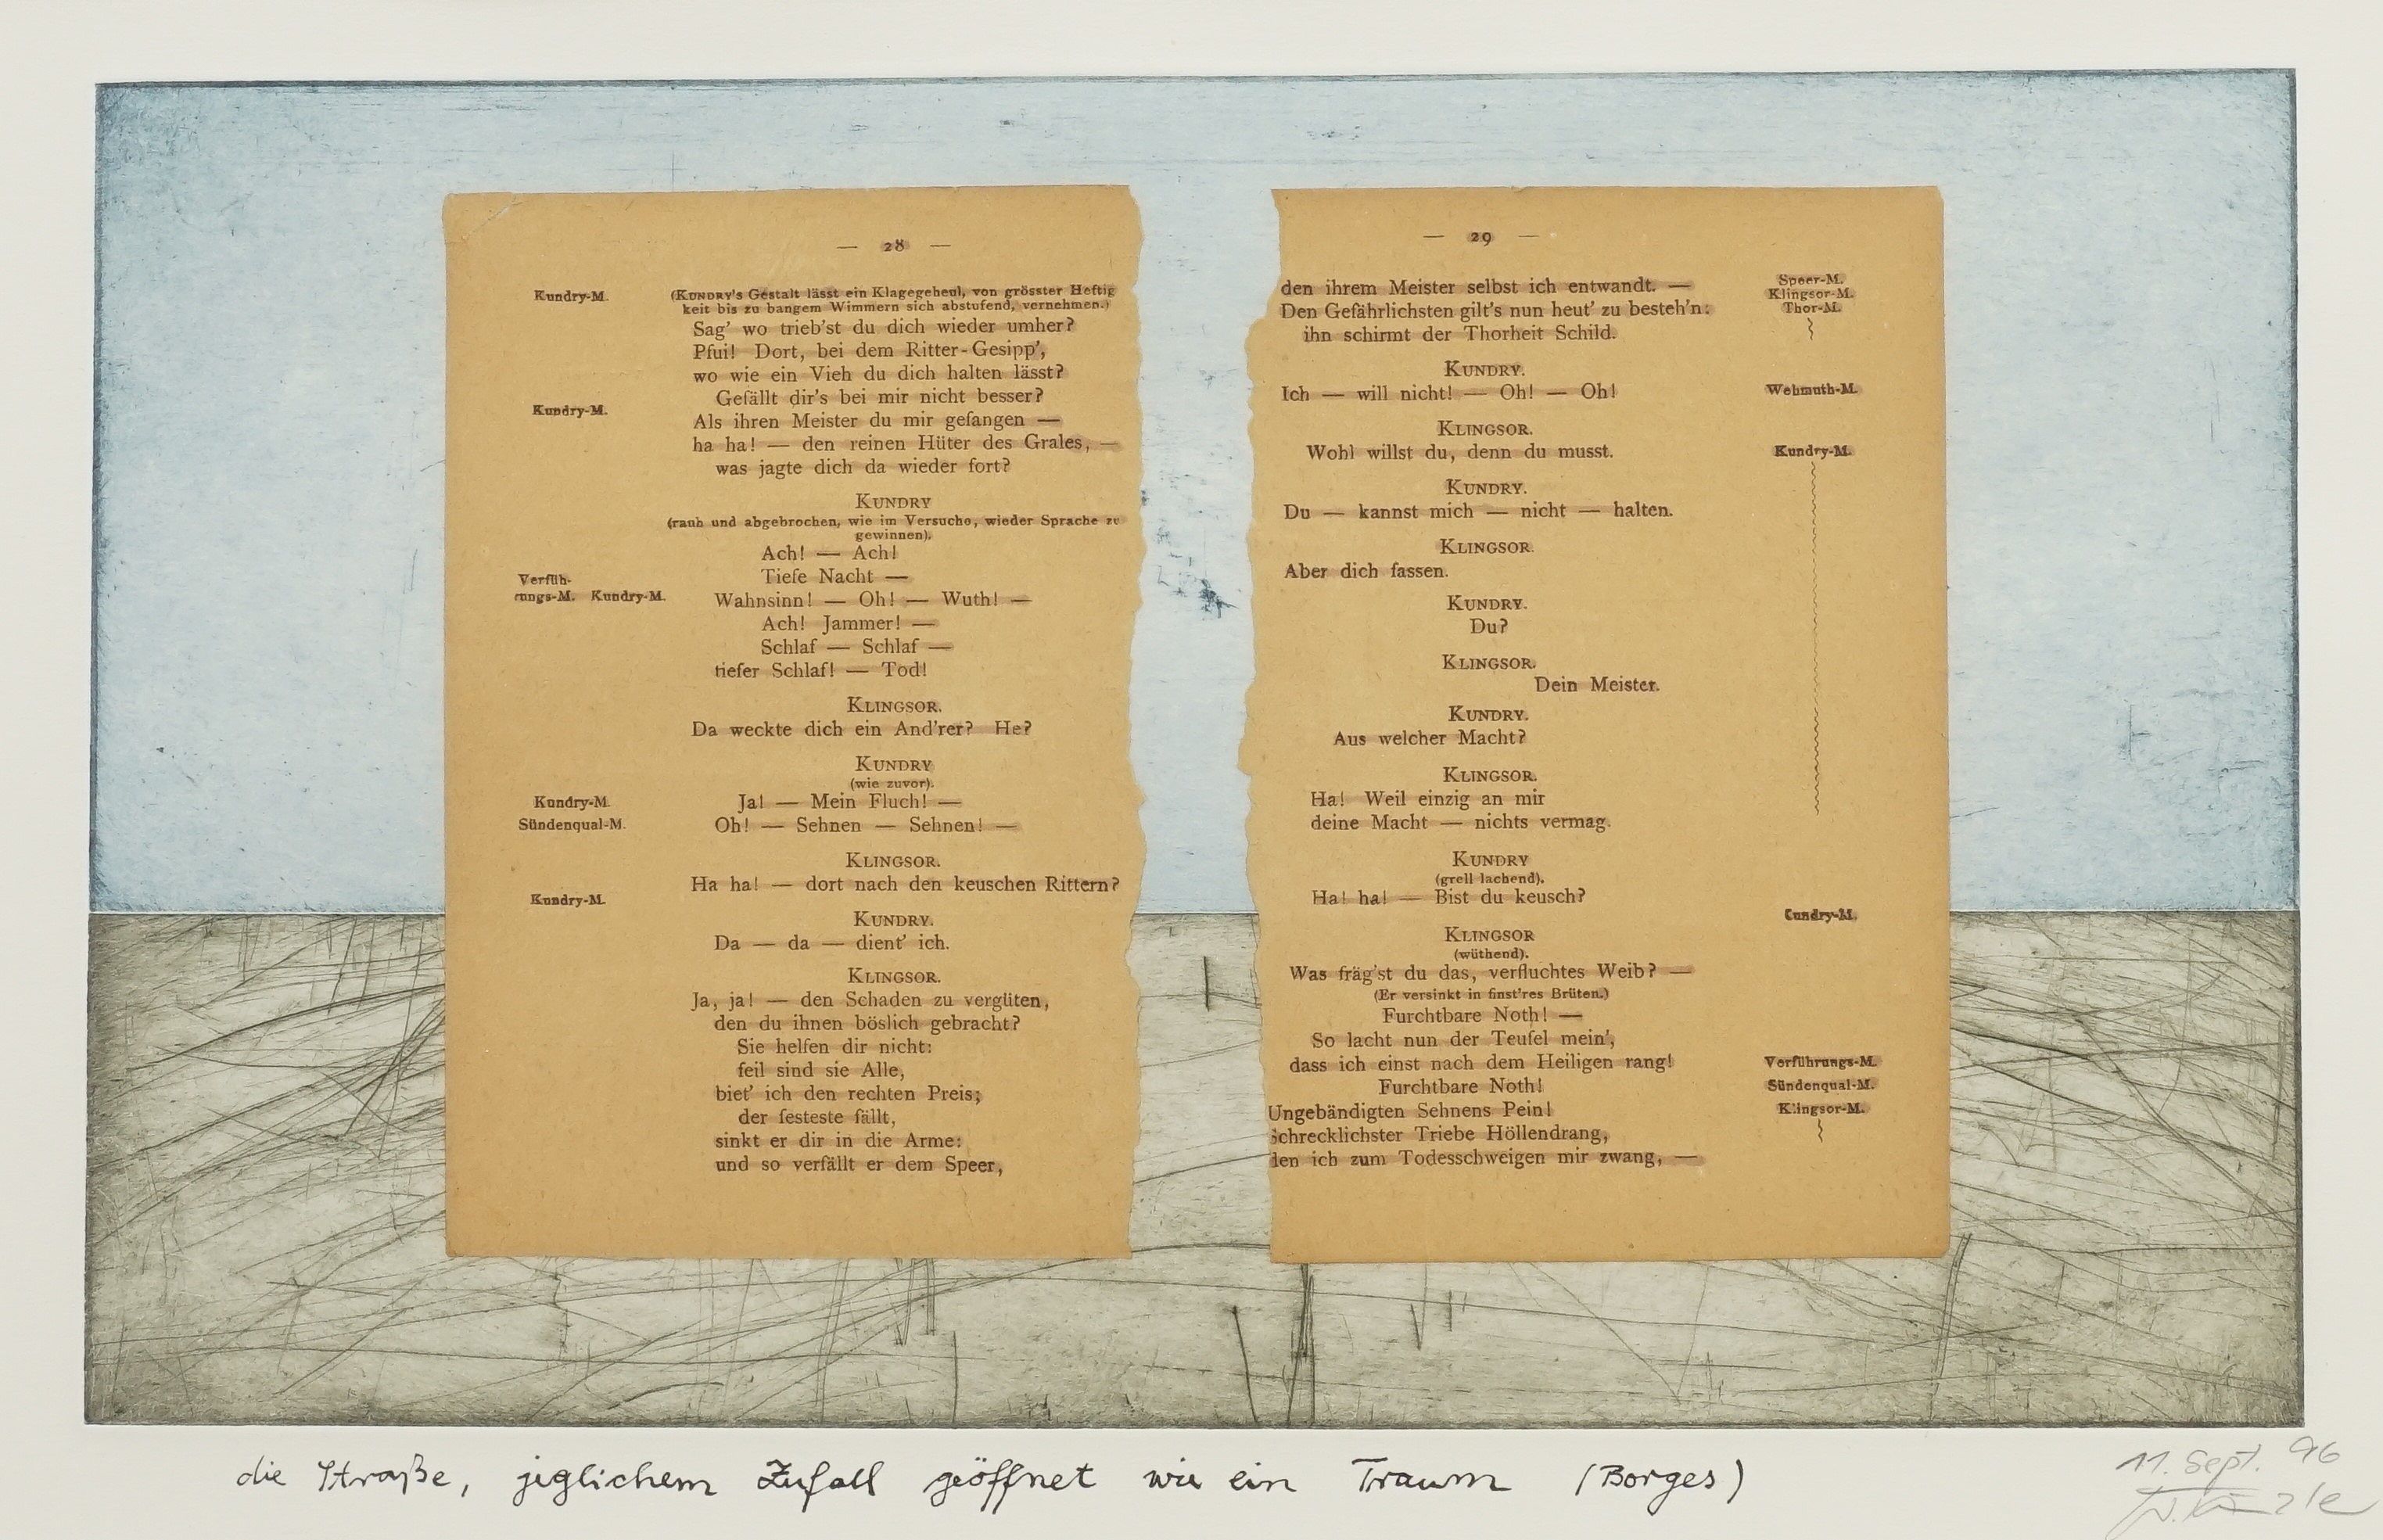 — 28 —
Kundry-M. (KUNDRY's Gestalt lässt ein Klagegeheul, von grösster Heftig
keit bis zu bangem Wimmern sich abstufend, vernehmen.)
Sag' wo trieb'st du dich wieder umher?
Pfui! Dort, bei dem Ritter-Gesipp',
wo wie ein Vieh du dich halten lässt?
Gefällt dir's bei mir nicht besser?
Kundry-M.
Als ihren Meister du mir gefangen —
ha ha! — den reinen Hüter des Grales, —
was jagte dich da wieder fort?
KUNDRY
(rauh und abgebrochen, wie im Versuche, wieder Sprache zu
gewinnen).
Ach! — Ach!
Tiefe Nacht —
Verfüh-
rungs-M. Kundry-M. Wahnsinn! — Oh! — Wuth! —
Ach! Jammer! —
Schlaf — Schlaf —
tiefer Schlaf! — Tod!
KLINGSOR.
Da weckte dich ein And'rer? He?
KUNDRY
(wie zuvor).
Kundry-M. Ja! — Mein Fluch! —
Sündenqual-M. Oh! — Sehnen — Sehnen! —
KLINGSOR.
Ha ha! — dort nach den keuschen Rittern?
Kundry-M.
KUNDRY.
Da — da — dient' ich.
KLINGSOR.
Ja, ja! — den Schaden zu vergüten,
den du ihnen böslich gebracht?
Sie helfen dir nicht:
feil sind sie Alle,
biet' ich den rechten Preis;
der festeste fällt,
sinkt er dir in die Arme:
und so verfällt er dem Speer,
— 29 —
den ihrem Meister selbst ich entwandt. — Speer-M.
Klingsor-M.
Den Gefährlichsten gilt's nun heut' zu besteh'n: Thor-M.
ihn schirmt der Thorheit Schild.
KUNDRY.
Ich — will nicht! — Oh! — Oh! Wehmuth-M.
KLINGSOR.
Wohl willst du, denn du musst. Kundry-M.
KUNDRY.
Du — kannst mich — nicht — halten.
KLINGSOR.
Aber dich fassen.
KUNDRY.
Du?
KLINGSOR.
Dein Meister.
KUNDRY.
Aus welcher Macht?
KLINGSOR.
Ha! Weil einzig an mir
deine Macht — nichts vermag.
KUNDRY
(grell lachend).
Ha! ha! — Bist du keusch?
Kundry-M.
KLINGSOR
(wüthend).
Was fräg'st du das, verfluchtes Weib? —
(Er versinkt in finst'res Brüten.)
Furchtbare Noth! —
So lacht nun der Teufel mein',
dass ich einst nach dem Heiligen rang! Verführungs-M.
Furchtbare Noth! Sündenqual-M.
Ungebändigten Sehnens Pein! Klingsor-M.
Schrecklichster Triebe Höllendrang,
den ich zum Todesschweigen mir zwang, —
die Straße, jeglichem Zufall geöffnet wie ein Traum (Borges)
11. Sept. 96